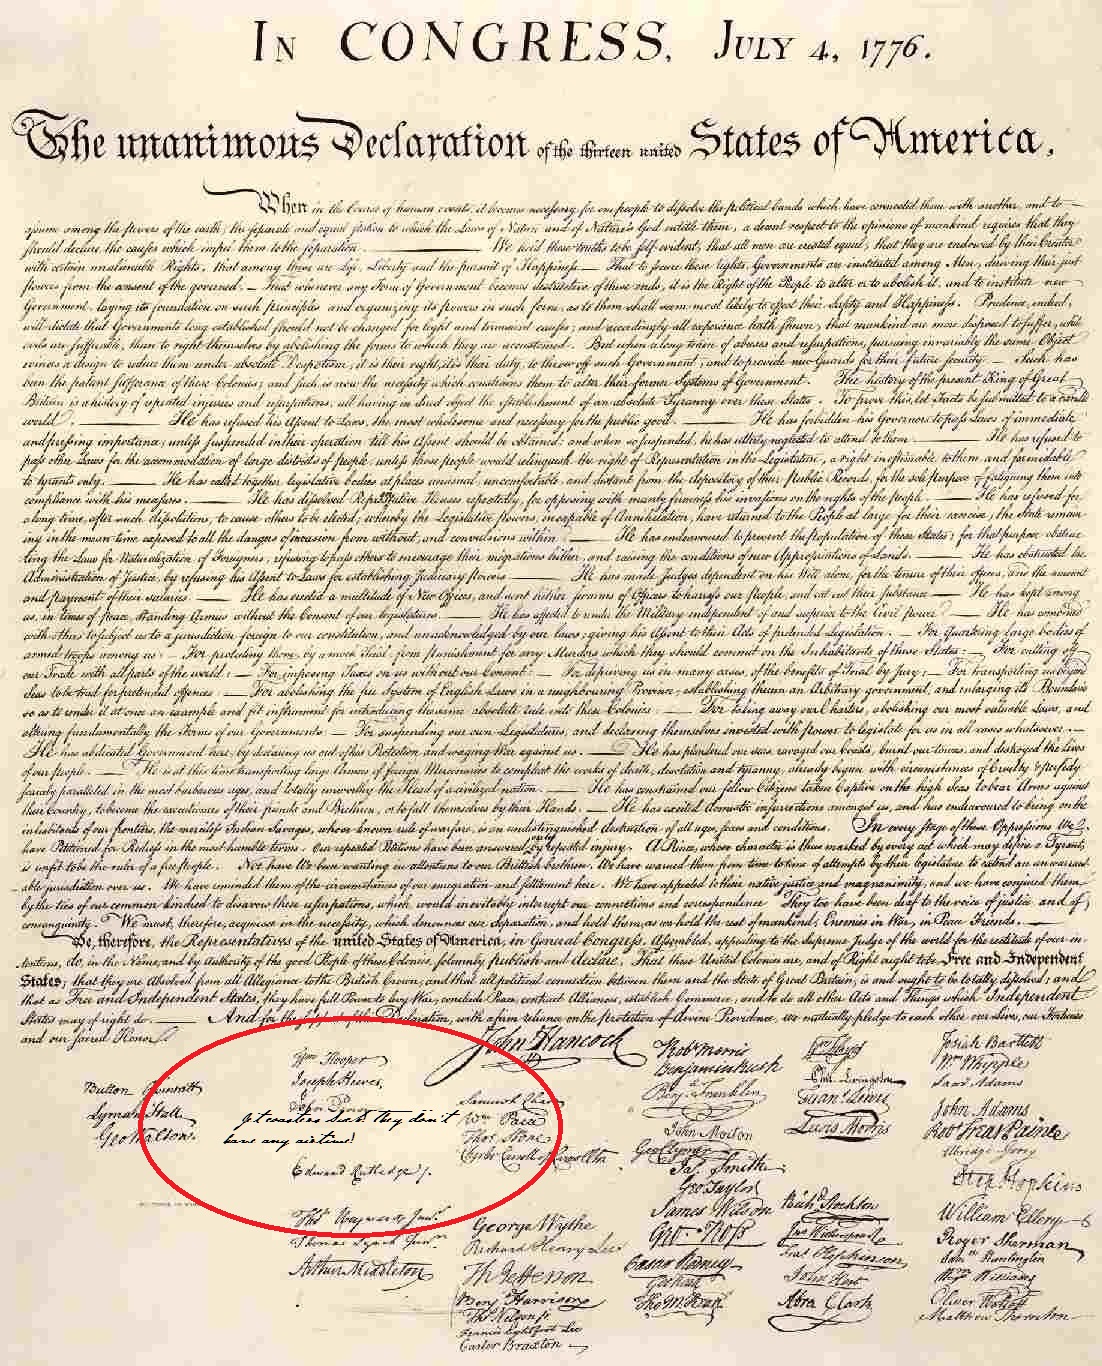 IN CONGRESS, JULY 4, 1776.
The unanimous Declaration of the thirteen united States of America,
When in the Course of human events, it becomes necessary for one people to dissolve the political bands which have connected them with another, and to
assume among the powers of the earth, the separate and equal station to which the Laws of Nature and of Nature's God entitle them, a decent respect to the opinions of mankind requires that they
should declare the causes which impel them to the separation. We hold these truths to be self-evident, that all men are created equal, that they are endowed by their Creator
with certain unalienable Rights, that among these are Life, Liberty and the pursuit of Happiness. — That to secure these rights, Governments are instituted among Men, deriving their just
powers from the consent of the governed, — That whenever any Form of Government becomes destructive of these ends, it is the Right of the People to alter or to abolish it, and to institute new
Government, laying its foundation on such principles and organizing its powers in such form, as to them shall seem most likely to effect their Safety and Happiness. Prudence, indeed,
will dictate that Governments long established should not be changed for light and transient causes; and accordingly all experience hath shewn, that mankind are more disposed to suffer, while
evils are sufferable, than to right themselves by abolishing the forms to which they are accustomed. But when a long train of abuses and usurpations, pursuing invariably the same Object
evinces a design to reduce them under absolute Despotism, it is their right, it is their duty, to throw off such Government, and to provide new Guards for their future security. — Such has
been the patient sufferance of these Colonies; and such is now the necessity which constrains them to alter their former Systems of Government. The history of the present King of Great
Britain is a history of repeated injuries and usurpations, all having in direct object the establishment of an absolute Tyranny over these States. To prove this, let Facts be submitted to a candid
world. He has refused his Assent to Laws, the most wholesome and necessary for the public good. He has forbidden his Governors to pass Laws of immediate
and pressing importance, unless suspended in their operation till his Assent should be obtained; and when so suspended, he has utterly neglected to attend to them. He has refused to
pass other Laws for the accommodation of large districts of people, unless those people would relinquish the right of Representation in the Legislature, a right inestimable to them and formidable
to tyrants only. He has called together legislative bodies at places unusual, uncomfortable, and distant from the depository of their Public Records, for the sole purpose of fatiguing them into
compliance with his measures. He has dissolved Representative Houses repeatedly, for opposing with manly firmness his invasions on the rights of the people. He has refused for
a long time, after such dissolutions, to cause others to be elected; whereby the Legislative powers, incapable of Annihilation, have returned to the People at large for their exercise; the State remain-
ing in the mean time exposed to all the dangers of invasion from without, and convulsions within. He has endeavoured to prevent the population of these States; for that purpose obstruc-
ting the Laws for Naturalization of Foreigners; refusing to pass others to encourage their migrations hither, and raising the conditions of new Appropriations of Lands. He has obstructed the
Administration of Justice, by refusing his Assent to Laws for establishing Judiciary powers. He has made Judges dependent on his Will alone, for the tenure of their offices, and the amount
and payment of their salaries. He has erected a multitude of New Offices, and sent hither swarms of Officers to harrass our people, and eat out their substance. He has kept among
us, in times of peace, Standing Armies without the Consent of our legislatures. He has affected to render the Military independent of and superior to the Civil power. He has combined
with others to subject us to a jurisdiction foreign to our constitution, and unacknowledged by our laws; giving his Assent to their Acts of pretended Legislation: — For Quartering large bodies of
armed troops among us: — For protecting them, by a mock Trial, from punishment for any Murders which they should commit on the Inhabitants of these States: — For cutting off
our Trade with all parts of the world: — For imposing Taxes on us without our Consent: — For depriving us in many cases, of the benefits of Trial by Jury: — For transporting us beyond
Seas to be tried for pretended offences: — For abolishing the free System of English Laws in a neighbouring Province, establishing therein an Arbitrary government, and enlarging its Boundaries
so as to render it at once an example and fit instrument for introducing the same absolute rule into these Colonies: — For taking away our Charters, abolishing our most valuable Laws, and
altering fundamentally the Forms of our Governments: — For suspending our own Legislatures, and declaring themselves invested with power to legislate for us in all cases whatsoever. —
He has abdicated Government here, by declaring us out of his Protection and waging War against us. He has plundered our seas, ravaged our Coasts, burnt our towns, and destroyed the lives
of our people. He is at this time transporting large Armies of foreign Mercenaries to compleat the works of death, desolation and tyranny, already begun with circumstances of Cruelty & perfidy
scarcely paralleled in the most barbarous ages, and totally unworthy the Head of a civilized nation. He has constrained our fellow Citizens taken Captive on the high Seas to bear Arms against
their Country, to become the executioners of their friends and Brethren, or to fall themselves by their Hands. He has excited domestic insurrections amongst us, and has endeavoured to bring on the
inhabitants of our frontiers, the merciless Indian Savages, whose known rule of warfare, is an undistinguished destruction of all ages, sexes and conditions. In every stage of these Oppressions We
have Petitioned for Redress in the most humble terms: Our repeated Petitions have been answered only by repeated injury. A Prince, whose character is thus marked by every act which may define a Tyrant,
is unfit to be the ruler of a free people. Nor have We been wanting in attentions to our Brittish brethren. We have warned them from time to time of attempts by their legislature to extend an unwarrant-
able jurisdiction over us. We have reminded them of the circumstances of our emigration and settlement here. We have appealed to their native justice and magnanimity, and we have conjured them
by the ties of our common kindred to disavow these usurpations, which, would inevitably interrupt our connections and correspondence. They too have been deaf to the voice of justice and of
consanguinity. We must, therefore, acquiesce in the necessity, which denounces our Separation, and hold them, as we hold the rest of mankind, Enemies in War, in Peace Friends. —
We, therefore, the Representatives of the united States of America, in General Congress, Assembled, appealing to the Supreme Judge of the world for the rectitude of our in-
tentions, do, in the Name, and by Authority of the good People of these Colonies, solemnly publish and declare, That these United Colonies are, and of Right ought to be Free and Independent
States; that they are Absolved from all Allegiance to the British Crown, and that all political connection between them and the State of Great Britain, is and ought to be totally dissolved; and
that as Free and Independent States, they have full Power to levy War, conclude Peace, contract Alliances, establish Commerce, and to do all other Acts and Things which Independent
States may of right do. And for the support of this Declaration, with a firm reliance on the protection of divine Providence, we mutually pledge to each other our Lives, our Fortunes
and our sacred Honor.
Button Gwinnett
Lyman Hall
Geo Walton.
Wm Hooper
Joseph Hewes,
John Penn
coasters they don't
have any airtime!
Edward Rutledge /.
Thos Heyward Junr.
Thomas Lynch Junr.
Arthur Middleton
John Hancock
Samuel Chase
Wm Paca
Thos Stone
Charles Carroll of Carrollton
George Wythe
Richard Henry Lee
Th Jefferson
Benj Harrison
Thos Nelson jr.
Francis Lightfoot Lee
Carter Braxton
Robt Morris
Benjamin Rush
Benj. Franklin
John Morton
Geo Clymer
Jas. Smith
Geo. Taylor
James Wilson
Geo. Ross
Caesar Rodney
Geo Read
Tho M. Kean
Wm Floyd
Phil. Livingston
Frans. Lewis
Lewis Morris
Richd. Stockton
Jno Witherspoon
Fras. Hopkinson
John Hart
Abra Clark
Josiah Bartlett
Wm. Whipple
Saml Adams
John Adams
Robt Treat Paine
Elbridge Gerry
Step. Hopkins
William Ellery
Roger Sherman
Saml Huntington
Wm. Williams
Oliver Wolcott
Matthew Thornton